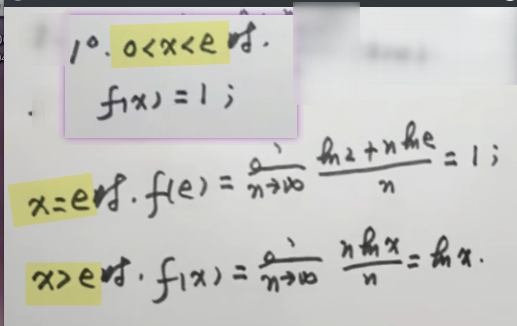 1°. 0<x<e时.
f(x) = 1 ;
x=e时. f(e) = lim n→∞ (ln2+n lne)/n = 1 ;
x>e时. f(x) = lim n→∞ (n ln x)/n = ln x.